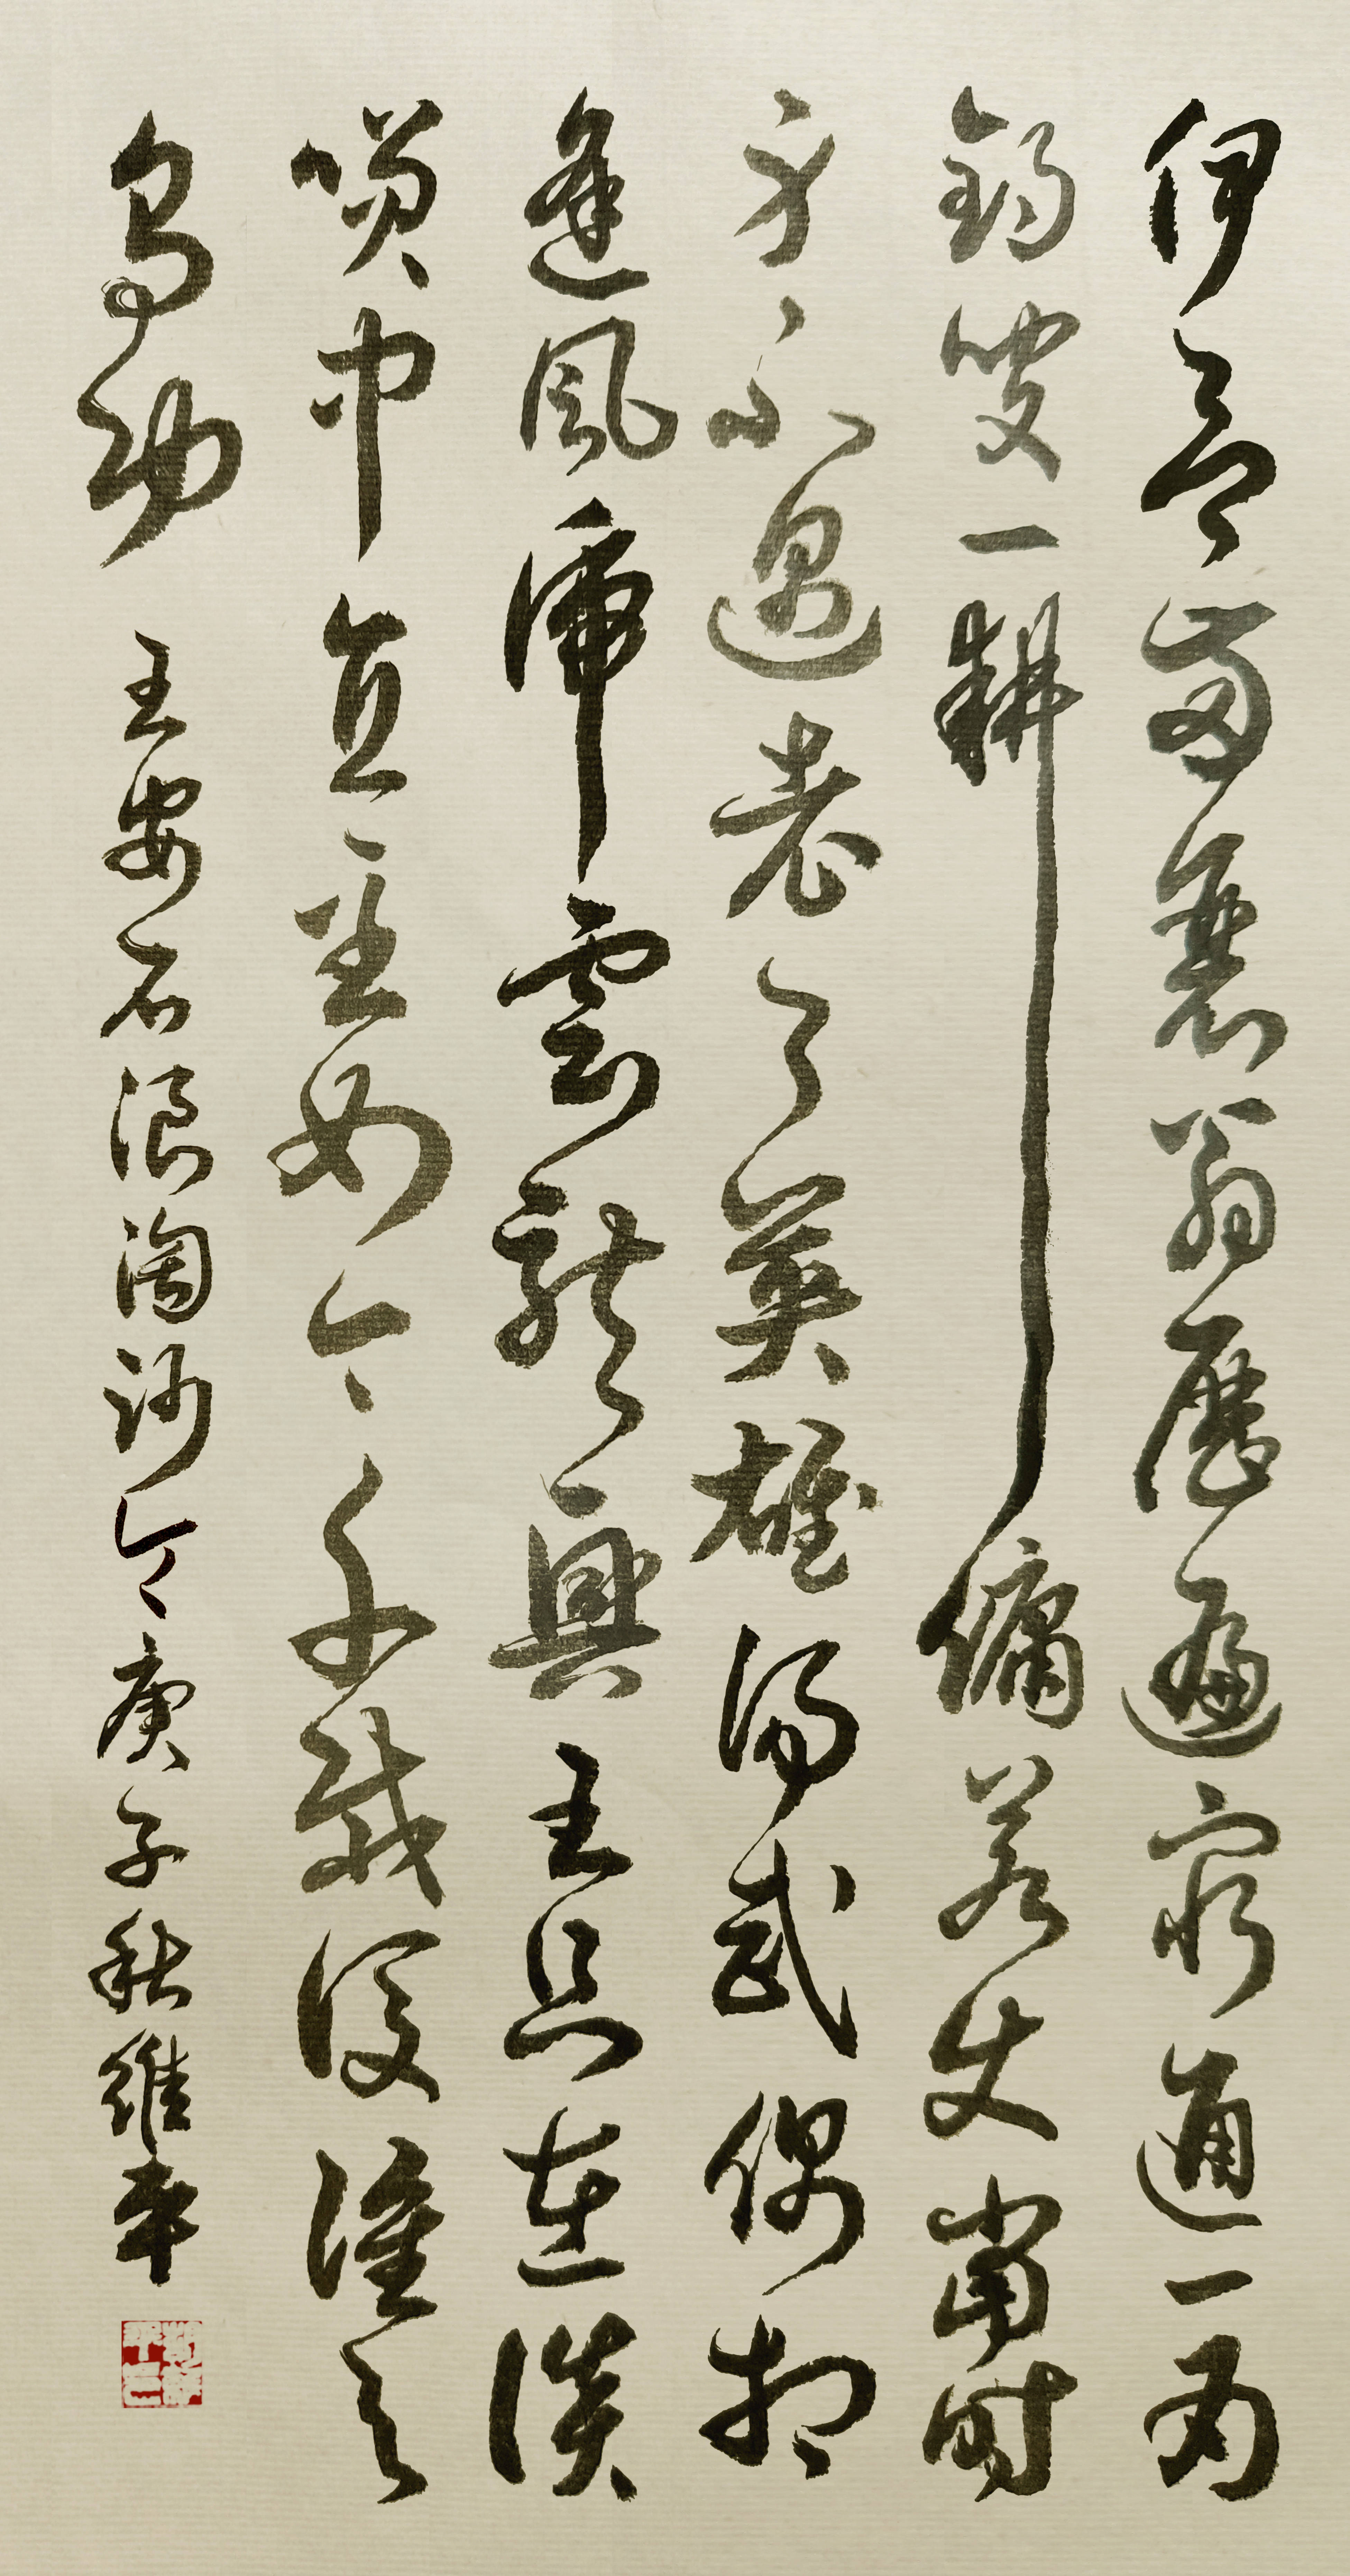 伊呂兩衰翁歷遍窮通一為
釣叟一耕傭若使當時
身不遇老了英雄湯武偶相
逢風虎雲龍興王只在談
咲中直至如今千載後誰與
爭功 王安石浪淘沙令 庚子秋維平